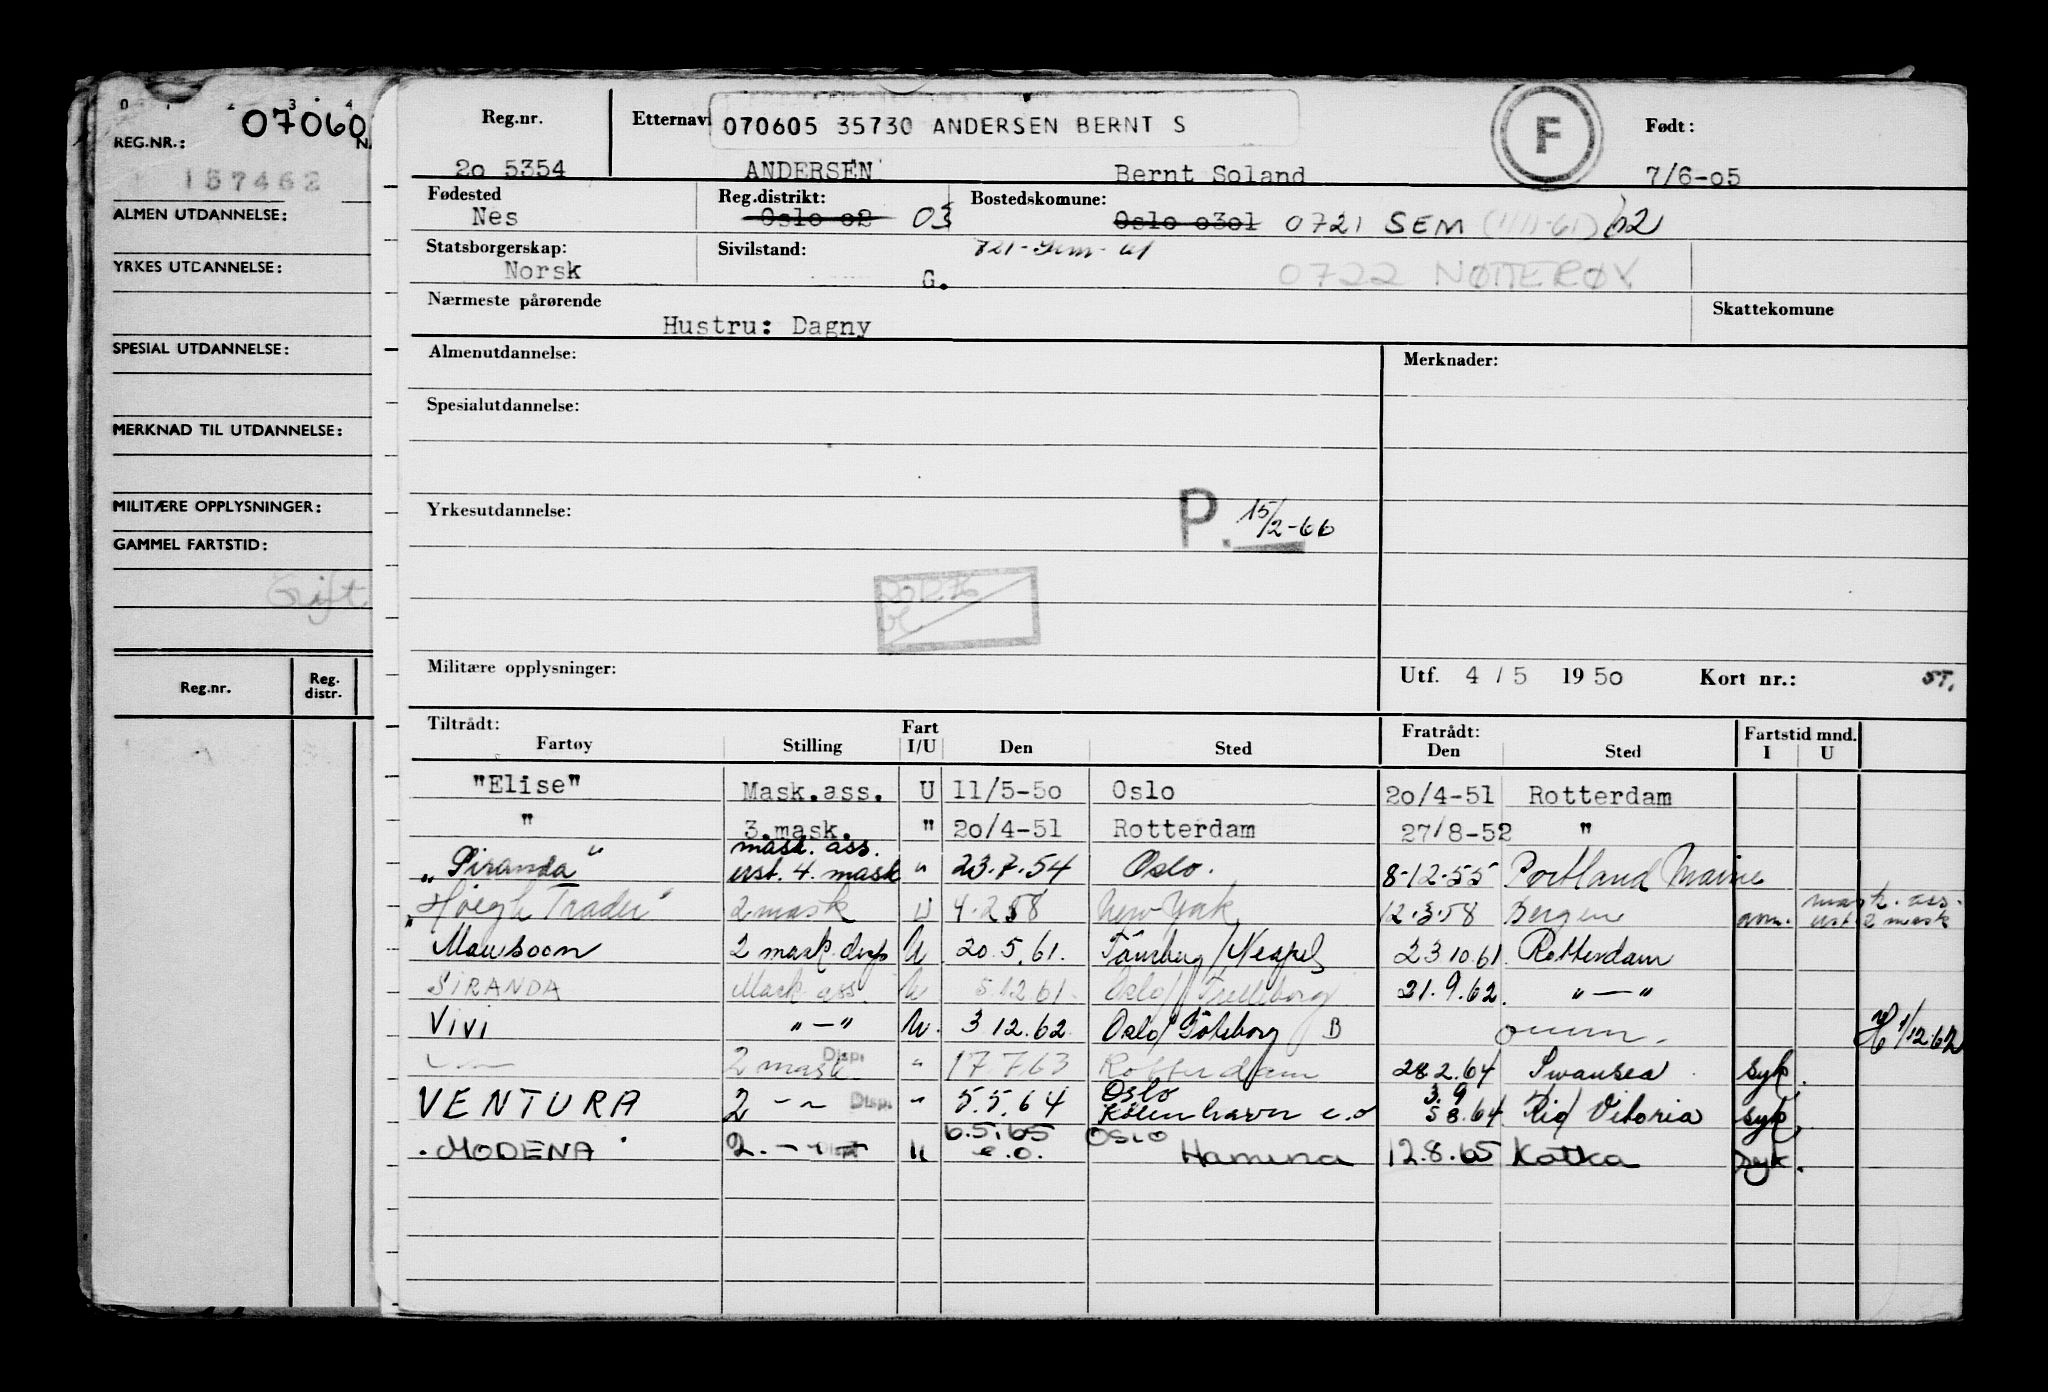 0 1 2 3 4
REG.NR.: 07060 N
157462
ALMEN UTDANNELSE:
YRKES UTDANNELSE:
SPESIAL UTDANNELSE:
MERKNAD TIL UTDANNELSE:
MILITÆRE OPPLYSNINGER:
GAMMEL FARTSTID:
Gift
Reg.nr. Reg. distr.
Reg.nr. Etternavn 070605 35730 ANDERSEN BERNT S F Født:
2o 5354 ANDERSEN Bernt Soland 7/6-o5
Fødested Reg.distrikt: Bostedskomune:
Nes Oslo o2 03 Oslo o3o1 0721 SEM (1/11-61) 62
Statsborgerskap: Sivilstand: 721-Sem-61
Norsk G. 0722 NØTTERØY
Nærmeste pårørende Skattekomune
Hustru: Dagny
Almenutdannelse: Merknader:
Spesialutdannelse:
Yrkesutdannelse: P. 15/2-66
Militære opplysninger: Utf. 4 / 5 19 5o Kort nr.: 5T.
Tiltrådt: Fart Fratrådt: Fartstid mnd.
Fartøy Stilling I/U Den Sted Den Sted I U
"Elise" Mask.ass. U 11/5-5o Oslo 2o/4-51 Rotterdam
" 3.mask. " 2o/4-51 Rotterdam 27/8-52 "
mask. ass.
"Siranda" ust. 4. mask " 23.7.54 Oslo. 8-12-55 Portland Maine
"Høegh Trader" 2 mask U 4.2.58 New York 12.3.58 Bergen avm. mask. ass. ust 2 mask
Mausoon 2 mask. disp U 20.5.61. Tönsberg/Neapel 23 10.61. Rotterdam
SIRANDA Mask ass. U 5.12 61. Oslo/Trelleborg 21.9.62. "—"
Vivi "—" U. 3 12.62. Oslo/Göteborg B H 1/12 62
2 mask Disp. " 17 7 63 Rotterdam 28 2.64 Swansea syk.
VENTURA 2 -"- Disp. " 5.5.64 Oslo København e.o 3.9 5 8.64 Rio/Vitoria syk.
"MODENA" 2. -"- U 6.5.65 e.o. Oslo Hamina 12.8.65 Kotka syk.